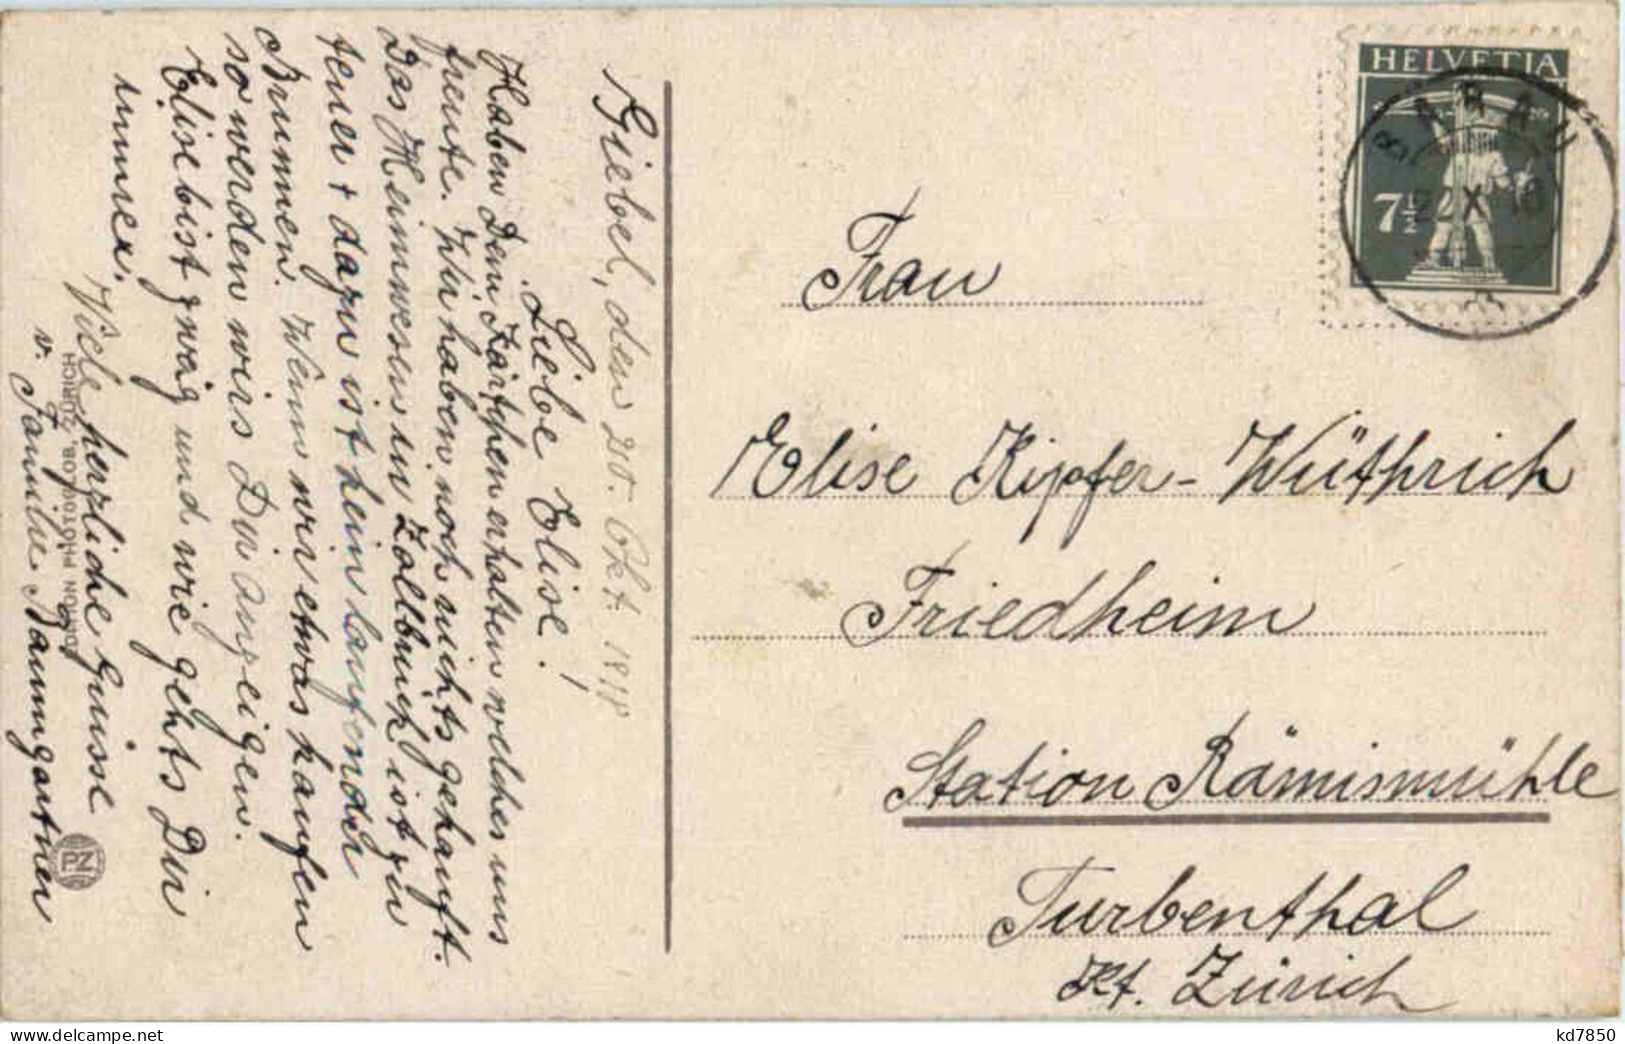 Giebel, den 20. Okt. 1918
Liebe Elise!
Haben Dein Kärtchen erhalten welches uns
freute. Wir haben noch nichts gekauft.
Das Heimwesen in Zollbrück ist zu
teuer + dazu ist kein laufender
Brunnen. Wenn wir etwas kaufen
so werden wirs Dir anzeigen.
Elise bist zwäg und wie gehts Dir
immer.
Viele herzliche Grüsse
v. Familie Baumgartner
PHOTOGLOB, ZÜRICH
PZ
HELVETIA
7½
BARAU
22 X 18
Frau
Elise Kipfer-Wüthrich
Friedheim
Station Rämismühle
Turbenthal
Kt. Zürich
www.delcampe.net
kd7850